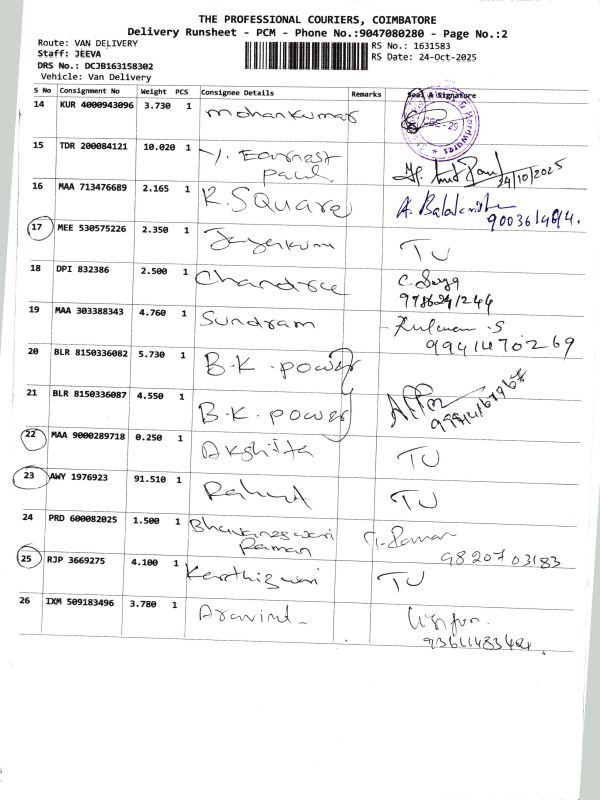 THE PROFESSIONAL COURIERS, COIMBATORE
Delivery Runsheet - PCM - Phone No.:9047080280 - Page No.:2
Route: VAN DELIVERY
RS No.: 1631583
Staff: JEEVA
RS Date: 24-Oct-2025
DRS No.: DCJB163158302
Vehicle: Van Delivery
S No Consignment No Weight PCS Consignee Details Remarks Seal & Signature
14 KUR 4000943096 3.730 1 Mohankumar
15 TDR 200084121 10.020 1 Earnest
Paul 24/10/2025
16 MAA 713476689 2.165 1 R. Square A. Balakrishn
17 MEE 530575226 2.350 1 Jeyakumi TU
18 DPI 832386 2.500 1 Chandra
19 MAA 303388343 4.760 1 Sundram
9941470269
20 BLR 8150336082 5.730 1 B.K. power
21 BLR 8150336087 4.550 1 B.K. power
22 MAA 9000289718 0.250 1 Akshitta TU
23 AWY 1976923 91.510 1 Rahul TU
24 PRD 600082025 1.500 1 Bhuvaneswari
Raman Raman
9820703183
25 RJP 3669275 4.100 1 Karthigwari TU
26 IXM 509183496 3.780 1 Aravind